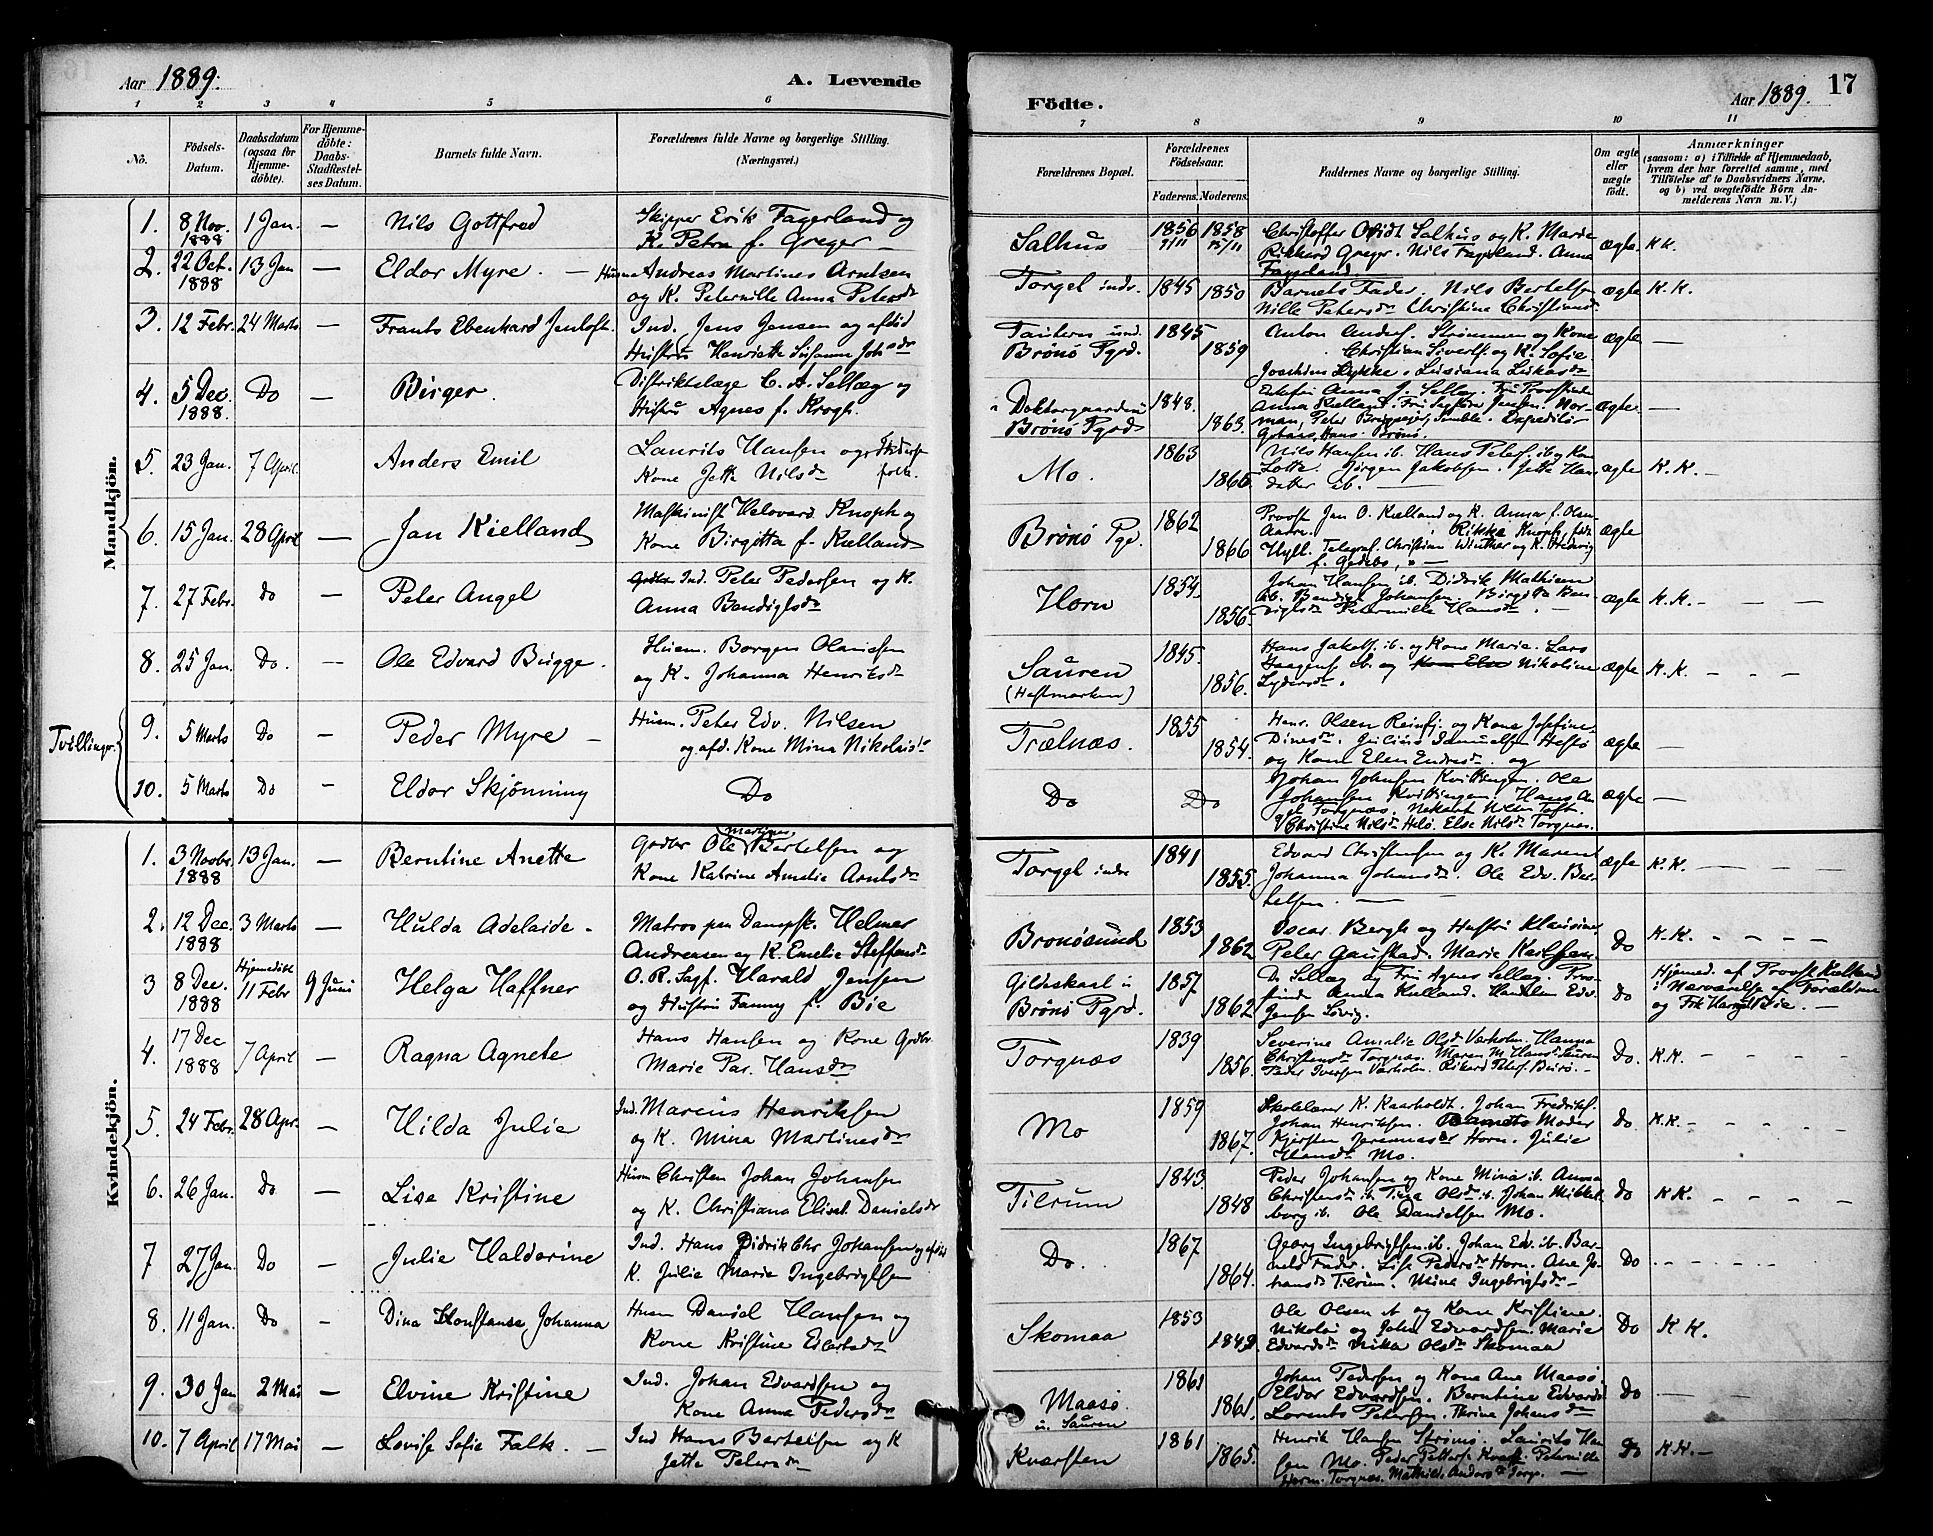 Aar 1889.
A. Levende
Födte.
Aar 1889.
17
1 2 3 4 5 6 7 8 9 10 11
Nö.
Födsels-
Datum.
Daabsdatum
(ogsaa for
Hjemme-
döbte).
For Hjemme-
döbte:
Daabs-
Stadfæstel-
ses Datum.
Barnets fulde Navn.
Forældrenes fulde Navne og borgerlige Stilling.
(Næringsvei.)
Forældrenes Bopæl.
Forældrenes
Födselsaar.
Faderens. Moderens.
Faddernes Navne og borgerlige Stilling.
Om ægte
eller
uægte
födt.
Anmærkninger
(saasom: a) i Tilfælde af Hjemmedaab,
hvem der har forrettet samme, med
Tilföielse af to Daabsvidners Navne,
og b) ved uægtefödte Börn An-
melderens Navn m. V.)
Mandkjön.
1. 8 Nov. 1888 1 Jan. — Nils Gottfred
Skipper Erik Fagerland og
K. Petra f. Greger —
Salhus 1856 7/11 1858 15/11
Christoffer Qvidt Salhus og K. Marie
Rikhard Greger. Nils Fagerland. Anna
Fagerland
ægte K.K.
2. 22 Oct. 1888 13 Jan — Eldor Myre. —
Husm Andreas Martines Arntsen
og K. Peternille Anna Petersdr
Torget indr. 1845 1850
Barnets Fader. Nils Bertelsen
Nille Petersdr Christine Christiansdr
ægte K.K.
3. 12 Febr. 24 Marts — Frants Ebenhard Jentoft.
Ind. Jens Jensen og afdöd
Hustru Henriette Susanna Johsdr
Brönö Pgrd. 1845 1859
Anton Anders. Strömmen og Kone
Christian Sivertf. og K. Sofie
Joachim Lykke. Lusiana Lukasdr
ægte —
4. 5 Dec. 1888. Do — Birger.
Distriktslæge C. A. Sellæg og
Hustru Agnes f. Krogh.
i Doktorgaarden
Brönö Pgrd 1848. 1863.
ægte —
5. 23 Jan. 7 April. — Anders Emil
Laurits Hansen og
Kone Jette Nilsdr
Mo. 1863 1866.
Nils Hansen ib. Hans Peters. ib og Kone
Lotte. Jörgen Jakobsen. Jette Han
datter ib. —
ægte K.K. —
6. 15 Jan. 28 April — Jan Kielland
Maskinist Helovard Knoph og
Kone Birgitta f. Kielland
Brönö Pgd. 1862 1866
Provst Jan O. Kielland og K. Anna f. Olsen
Rikke Knoph, föd
Hyll. Telegraf. Christian Winther og K. Hedevig
ægte
7. 27 Febr. Do — Peter Angel
Ind. Peter Pedersen og K.
Anna Bendigtsdr
Horn 1854. 1856.
Johan Hansen ib. Didrik Mathisen
ib. Bendigt Johansen. Birgitte Ben-
digtsdr Peternille Hansdr. —
ægte K.K. — — —
8. 25 Jan. Do. — Ole Edvard Bugge.
Husm. Borgen Olaisen
og K. Johanna Henriksdr
Sauren
(Hestmarken) 1845. 1856.
Hans Jakobs. ib. og Kone Marie. Lars
Haagens. ib. og Nikoline
Lydersdr.
ægte K.K. — — —
Tvillinger.
9. 5 Marts Do — Peder Myre —
Husm. Peter Edv. Nilsen
og afd. Kone Mina Nikolaisdr
Trælnæs. 1855 1854.
Henr. Olsen Reinfj. og Kone Josefine
Dinesdr. Julius Samuelsen Hestö
og Kone Elen Endresdr. og
ægte —
10. 5 Marts Do — Eldor Skjönning
Do Do Do
Johan Johnsen Kvittingen. Ole
Johansen Kvittingen. Hans An
Christine Nilsdr Helö. Else Nilsdr Torgnæs.
ægte —
Kvindekjön.
1. 3 Novbr. 1888 13 Jan. — Berntine Anette
Gadbr Ole Martines Bertelsen og
Kone Katrine Amelie Arntsdr
Torget indr 1841 1855.
Edvard Christensen og K. Maren
Johanna Johansdr. Ole Edv. Ber-
telsen. — —
ægte K.K. — — —
2. 12 Dec. 1888 3 Marts — Hulda Adelaide.
Matros paa Dampsk. Helmer
Andreasen og K. Emelie Steffensdr
Brönösund 1853 1862
Oscar Bergh og Hustru Klausine
Peter Gaustad. Marie Karlsen.
Do K.K. — — — —
3 8 Dec. 1888 Hjemmedöbt 11 Febr 9 Juni Helga Haffner
O.R. Sagf. Harald Jensen
og Hustru Fanny f. Böe
Gildeskaal i
Brönö Pgrd. 1857 1862
Dr Sellæg og Fru Agnes Sellæg. Prov-
stinde Anna Kielland. Handlm Edv.
Jensen
Do Hjemed. af Provst Kielland
i Nærværelse af Forældrene
og Frk Harga Böe. —
4. 17 Dec 1888 7 April — Ragna Agnete
Hans Hansen og Kone Gadbr.
Marie Par. Hansdr
Torgnæs 1839 1856.
Severine Amalie Olsdr Værholm. Hanna
Christensdr Torgnæs. Maren M. Hansdr Sauren
Peder Iversen Værholm. Rikard Peters. Burö. —
Do. K.K. — — — —
5. 24 Febr. 28 Apr. — Hilda Julie
Ind. Marcus Henriksen
og K. Mina Martinesdr
Mo 1859 1867.
Skolelærer K. Kaarholdt. Johan Fredriks.
Johan Henriksen. Barnets Moder
Kjersten Jeremiasdr Horn. Julie
Hansdr Mo.
Do. K.K. — — — —
6. 26 Jan. Do — Lise Kristine
Husm Christen Johan Johansen
og K. Christiana Elisab. Danielsdr
Tilrum 1843. 1848
Peder Johansen og Kone Mina ib. Anna
Christensdr ib. Tina Olsdr ib. Johan Mikkel
borg ib. Ole Danielsen Mo.
Do K.K. — — — —
7 27 Jan. Do — Julie Halderine
Ind. Hans Didrik Chr Johansen og afdöd
K. Julie Marie Ingebrigtsen
Do. 1867 1864.
Georg Ingebrigtsen ib. Johan Edv. ib. Bar-
nets Fader. Lise Pedersdr Horn. Ane Jo-
hansdr Tilrum. Mina Ingebrigtsdr —
Do
8. 11 Jan. Do — Dina Konstanse Johanna
Husm Daniel Hansen og
Kone Kristine Eilertsdr
Skomaa 1853 1849
Ole Olsen ib og Kone Kristine.
Nikolai og John Edvardsen. Marie
Edvardsdr Olsdr Skomaa
Do K K.
9. 30 Jan 2 Mai — Elvine Kristine
Ind. Johan Edvardsen og
Kone Anna Pedersdr
Maasö.
u. Sauren 1861 1861.
Johan Pedersen og Kone Ane Maasö.
Eldor Edvardsen. Berntine Edvardsdr
Lorents Petersen. Thrine Johansdr
Do — —
10. 7 April 17 Mai — Lovise Sofie Falk. —
Ind Hans Bertelsen og K
Jette Petersdr
Kvarsten 1861 1865.
Henrik Hansen Strömö. Laurits Han
sen Mo. Peder Petters. Peternille
Herm. Torgnæs. Mathilde Andersdr Torg. —
Do K.K. —